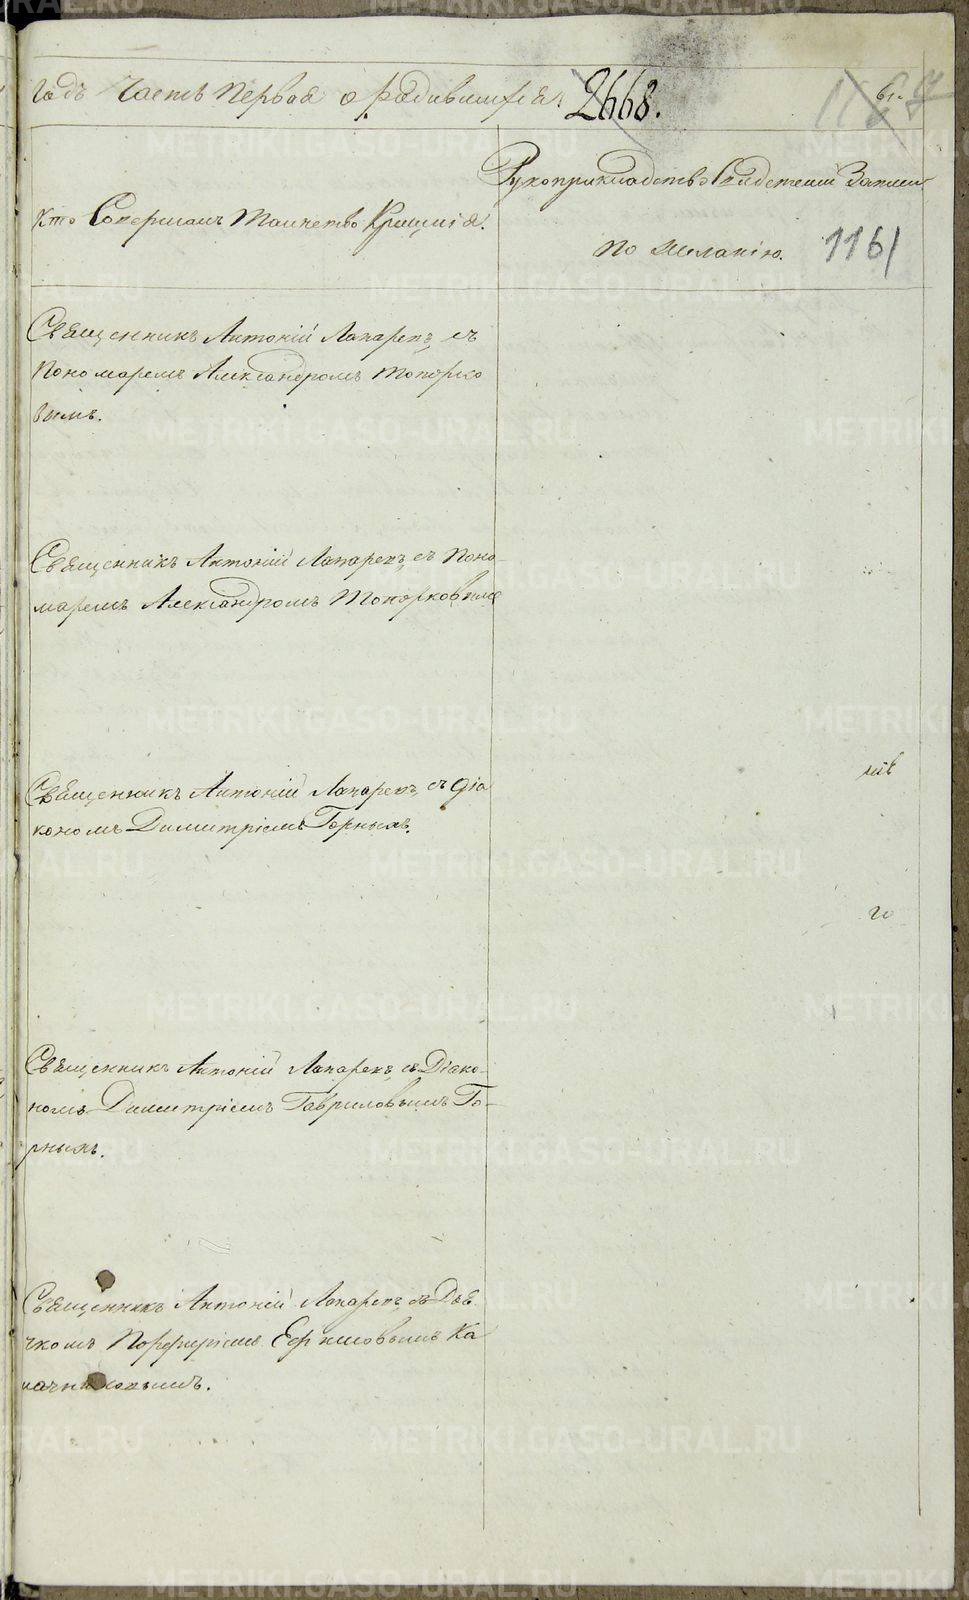 годъ Часть Первая о родившихся. 2668.
Кто Совершалъ Таинство Крещенія.
Рукоприкладство Свидетелей Записи
по желанію. 1161
Священникъ Антоній Лапаревъ съ
Пономаремъ Александромъ Топорко
вымъ.
Священникъ Антоній Лапаревъ съ Поно
маремъ Александромъ Топорковымъ
Священникъ Антоній Лапаревъ съ Діа
кономъ Димитріемъ Горныхъ.
Священникъ Антоній Лапаревъ съ Діако-
номъ Димитріемъ Гавриловымъ Го-
рныхъ.
Священникъ Антоній Лапаревъ съ Дья
чкомъ Порфиріемъ Ефимовымъ Ка
METRIKI.GASO-URAL.RU